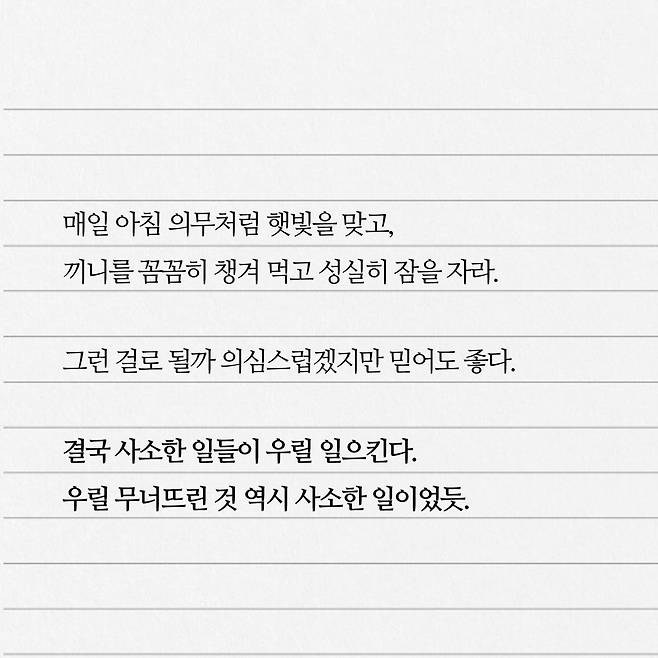 매일 아침 의무처럼 햇빛을 맞고,
끼니를 꼼꼼히 챙겨 먹고 성실히 잠을 자라.
그런 걸로 될까 의심스럽겠지만 믿어도 좋다.
결국 사소한 일들이 우릴 일으킨다.
우릴 무너뜨린 것 역시 사소한 일이었듯.